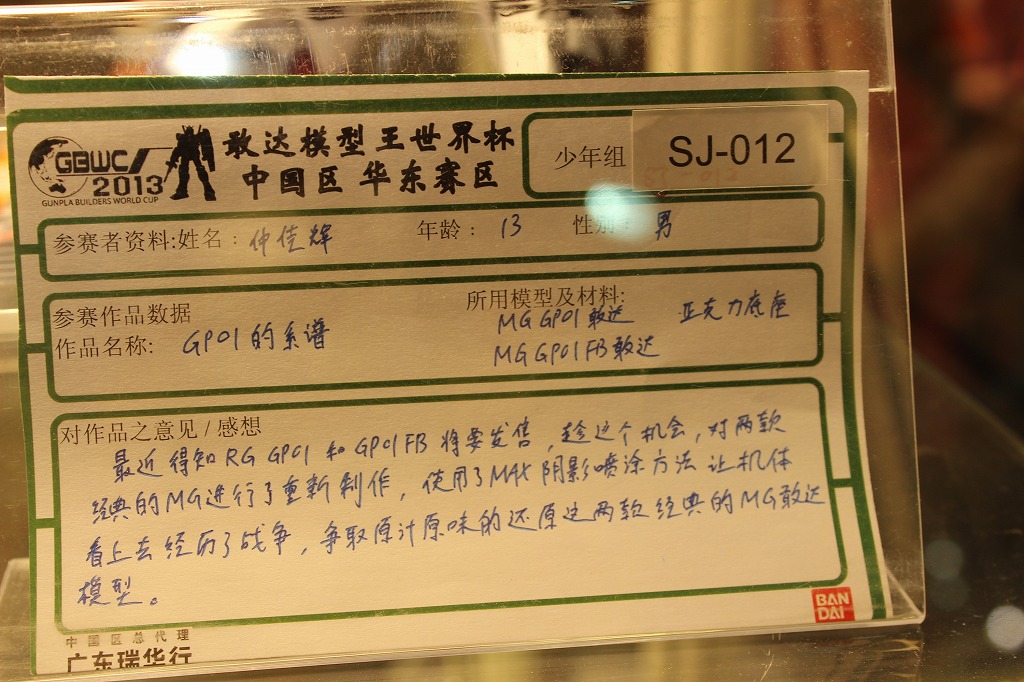 GBWC
2013
GUNPLA BUILDERS WORLD CUP
敢达模型王世界杯
中国区 华东赛区
少年组
SJ-012
参赛者资料:姓名: 仲佳辉 年龄: 13 性别: 男
参赛作品数据
作品名称: GP01的系谱
所用模型及材料:
MG GP01敢达 亚克力底座
MG GP01FB敢达
对作品之意见/感想
最近得知RG GP01和GP01FB将要发售,趁这个机会,对两款
经典的MG进行了重新制作,使用了MAX阴影喷涂方法让机体
看上去经历了战争,争取原汁原味的还原这两款经典的MG敢达
模型。
BAN
DAI
中国区总代理
广东瑞华行